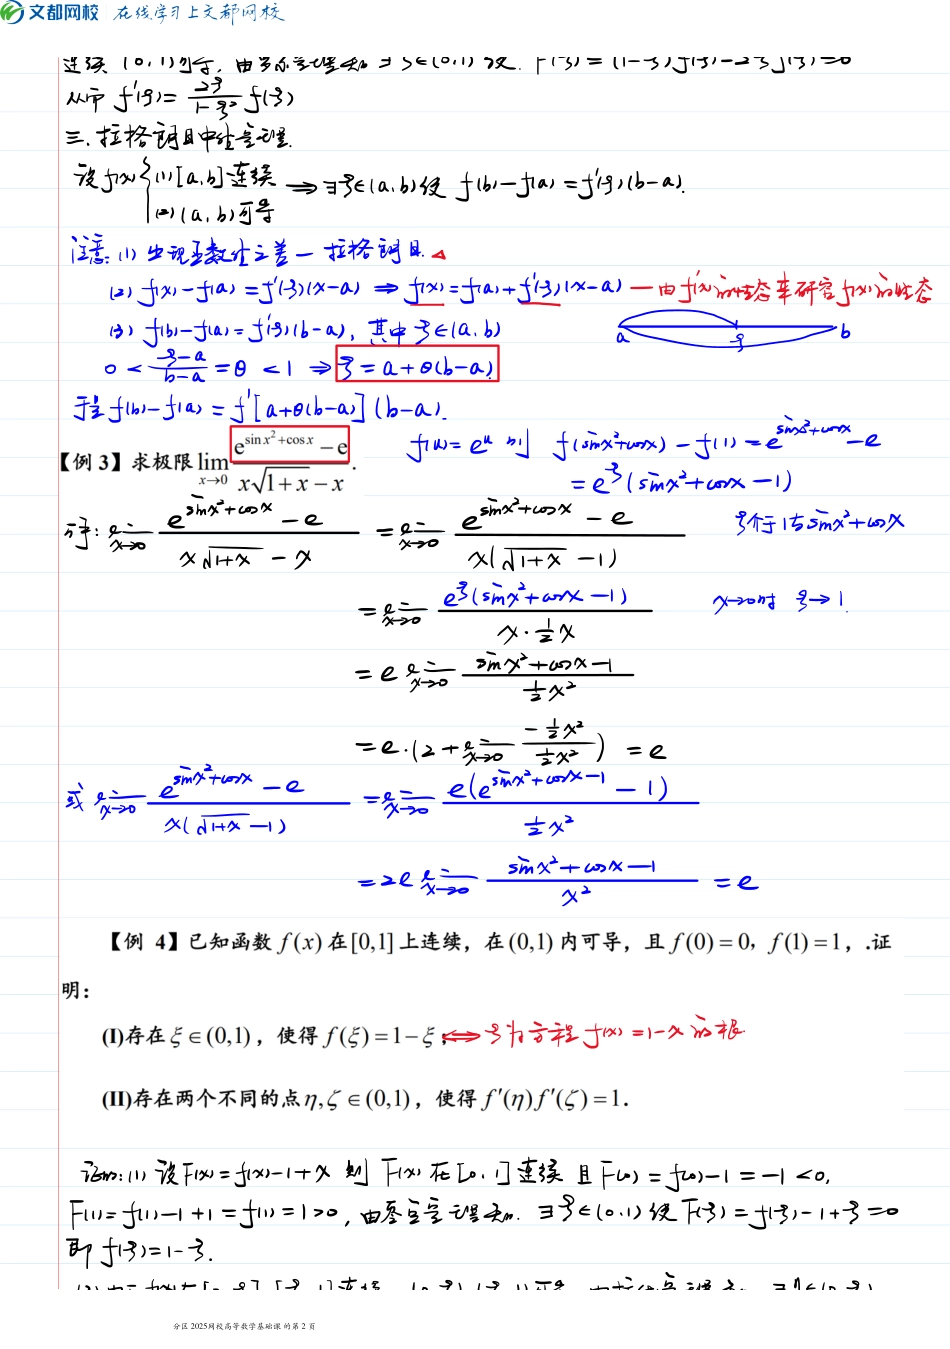 文都网校 在线学习上文都网校
连续 (0,1)可导, 由罗尔定理知 ∃ξ∈(0,1) 使 F'(ξ) = (1-ξ²)f'(ξ)-2ξf(ξ)=0
从而 f'(ξ)= 2ξ/(1-ξ²) f(ξ)
三. 拉格朗日中值定理.
设f(x) { (1)[a,b]连续 (2)(a,b)可导 ⇒ ∃ξ∈(a,b)使 f(b)-f(a)=f'(ξ)(b-a).
注意: (1) 出现函数值之差 — 拉格朗日.
(2) f(x)-f(a)=f'(ξ)(x-a) ⇒ f(x)=f(a)+f'(ξ)(x-a) — 由f'(x)的性态来研究f(x)的性态
(3) f(b)-f(a)=f'(ξ)(b-a), 其中 ξ∈(a,b)
a ξ b
0 < (ξ-a)/(b-a) = θ < 1 ⇒ ξ = a+θ(b-a).
于是 f(b)-f(a) = f'[a+θ(b-a)](b-a).
【例 3】求极限 lim_{x→0} (e^{sin x²+cos x} - e)/(x√(1+x) - x).
f(u)=e^u 则 f(sinx²+cosx)-f(1)=e^{sinx²+cosx}-e
= e^ξ(sinx²+cosx-1)
解: lim_{x→0} (e^{sinx²+cosx}-e)/(x√(1+x)-x) = lim_{x→0} (e^{sinx²+cosx}-e)/(x(√(1+x)-1))
ξ介于1与sinx²+cosx
= lim_{x→0} e^ξ(sinx²+cosx-1)/(x·½x)
x→0时 ξ→1.
= e lim_{x→0} (sinx²+cosx-1)/(½x²)
= e·(2+lim_{x→0} (-½x²)/(½x²)) = e
或 lim_{x→0} (e^{sinx²+cosx}-e)/(x(√(1+x)-1)) = lim_{x→0} e(e^{sinx²+cosx-1}-1)/(½x²)
= 2e lim_{x→0} (sinx²+cosx-1)/x² = e
【例 4】已知函数 f(x) 在[0,1]上连续，在(0,1)内可导，且 f(0)=0，f(1)=1，.证
明：
(I)存在 ξ∈(0,1)，使得 f(ξ)=1-ξ; ⇔ ξ为方程f(x)=1-x的根
(II)存在两个不同的点 η,ζ∈(0,1)，使得 f'(η)f'(ζ)=1.
证明: (1) 设F(x)=f(x)-1+x 则 F(x)在[0,1]连续 且 F(0)=f(0)-1=-1<0,
F(1)=f(1)-1+1=f(1)=1>0, 由零点定理知. ∃ξ∈(0,1)使 F(ξ)=f(ξ)-1+ξ=0
即 f(ξ)=1-ξ.
分区 2025网校高等数学基础课 的第 2 页